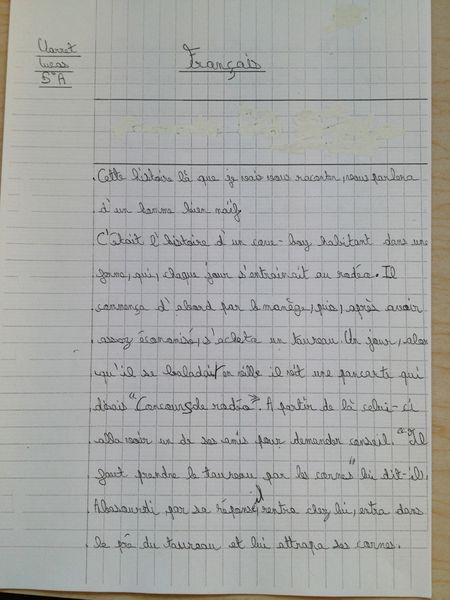 Clarret
Lucas
5°A
Français
Cette histoire là que je vais vous raconter, vous parlera
d'un homme bien naïf.
C'était l'histoire d'un cow-boy habitant dans une
ferme, qui, chaque jour s'entrainait au rodéo. Il
commença d'abord par le manège, puis, après avoir
assez économisé, s'acheta un taureau. Un jour, alors
qu'il se baladait en ville il vit une pancarte qui
disais "Concours de rodéo". A partir de là celui-ci
alla voir un de ses amis pour demander conseil. "Il
faut prendre le taureau par les cornes" lui dit-il.
Abasourdi, par sa réponse, il rentra chez lui, entra dans
le pré du taureau et lui attrapa ses cornes.